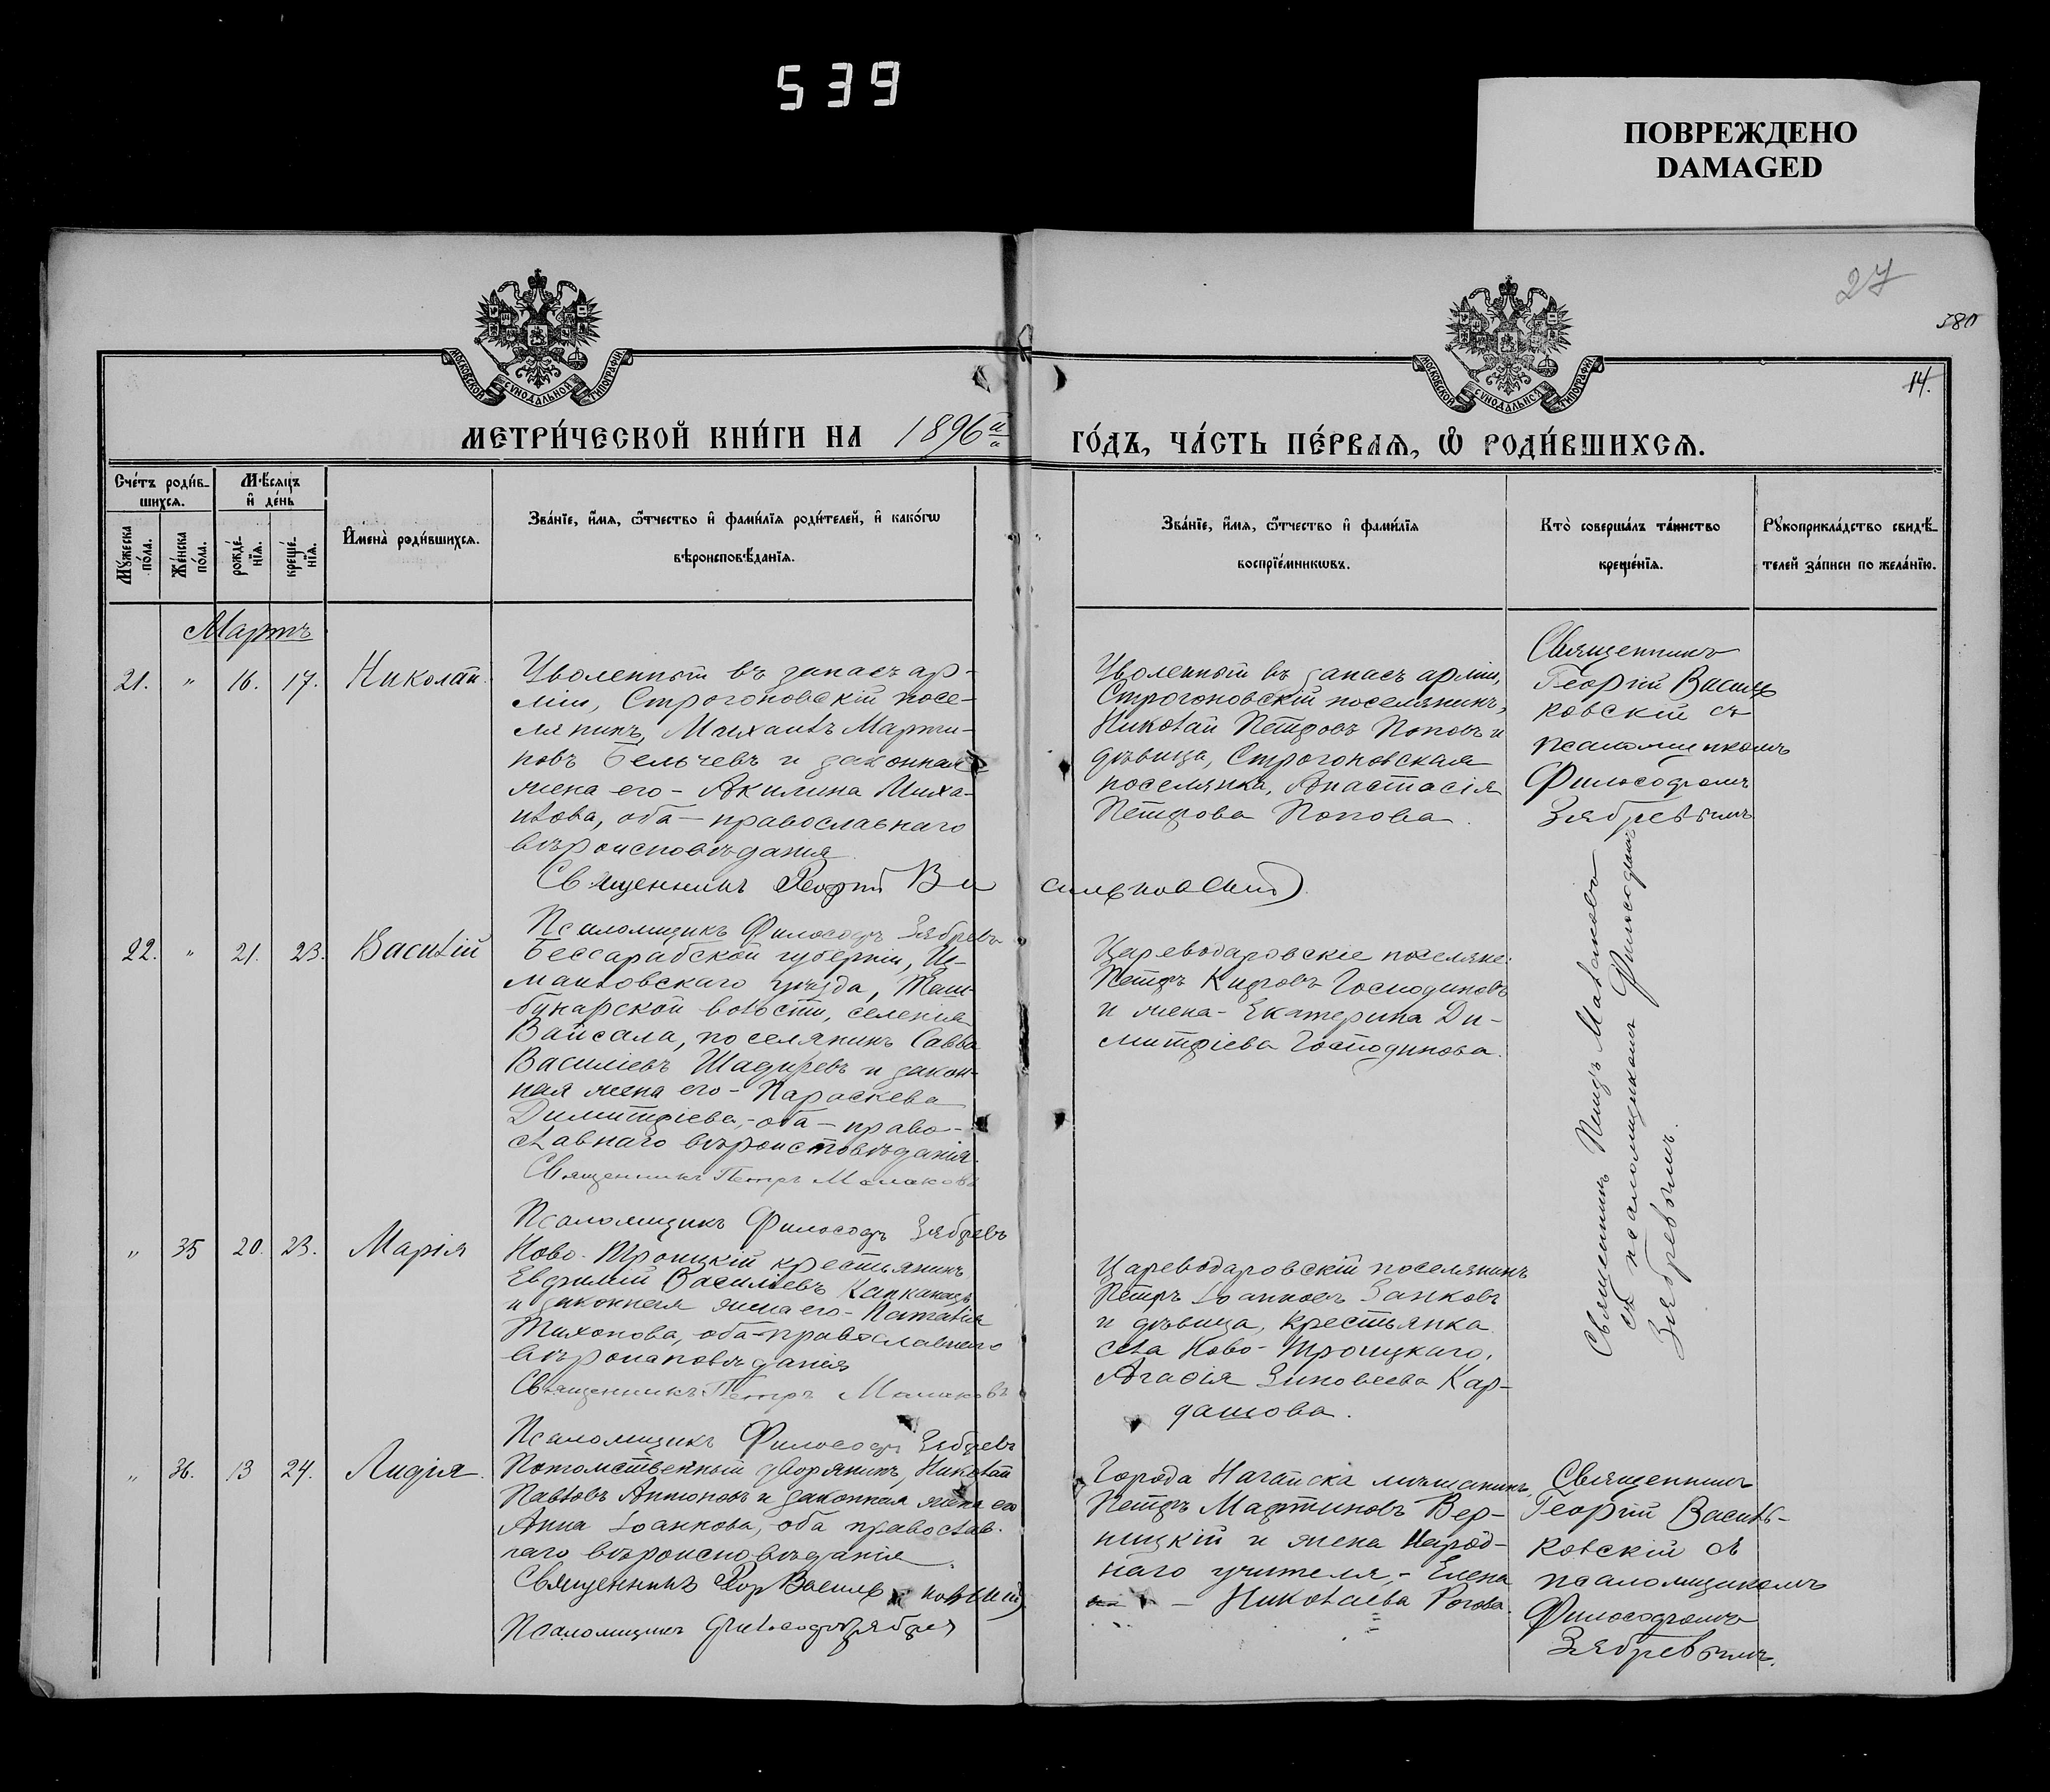 539
ПОВРЕЖДЕНО
DAMAGED
27
380
14.
МОСКОВСКОЙ СУНОДАЛЬНОЙ ТИПОГРАФИИ
МОСКОВСКОЙ СУНОДАЛЬНОЙ ТИПОГРАФИИ
МЕТРИ́ЧЕСКОЙ КНИ́ГИ НА 1896 й
ГО́ДЪ, ЧА́СТЬ ПЕ́РВАЯ, Ѡ РОДИ́ВШИХСЯ.
Сче́тъ роди́в-
шихся.
Му́жеска по́ла.
Же́нска по́ла.
Мѣ́сяцъ
и де́нь
рожде́-
нїя.
креще́-
нїя.
Имена̀ роди́вшихся.
Зва́нїе, и́мя, ѻ҆́тчество и фами́лїя роди́телей, и како́гѡ
вѣроисповѣ́данїя.
Зва́нїе, и́мя, ѻ҆́тчество и фами́лїя
воспрїе́мникѡвъ.
Кто̀ соверша́лъ та́инство
креще́нїя.
Рꙋкоприкла́дство свидѣ́-
телей за́писи по жела́нїю.
Мартъ
21. " 16. 17. Николай.
Уволенный въ запасъ ар-
міи, Строгоновскій посе-
лянинъ, Михаилъ Марти-
новъ Бельчевъ и законная
жена его - Акилина Миха-
илова, оба - православнаго
вѣроисповѣданія
Священникъ Георгій Ва сильковскій
Псаломщикъ Философъ Зябревъ
Уволенный въ запасъ арміи,
Строгоновскій поселянинъ,
Николай Петровъ Поповъ и
дѣвица, Строгоновская
поселянка, Анастасія
Петрова Попова.
Священникъ
Георгій Василь
ковскій съ
псаломщикомъ
Философомъ
Зябревымъ
22. " 21. 23. Василій
Бессарабской губерніи, Из-
маиловскаго уѣзда, Таш-
бунарской волости, селенія
Вайсала, поселянинъ Савва
Василіевъ Шадиревъ и закон-
ная жена его - Параскева
Димитріева, - оба - право-
славнаго вѣроисповѣданія.
Священникъ Петръ Малаховъ
Псаломщикъ Философъ Зябревъ
Цареводаровскіе поселяне:
Петръ Кировъ Господиновъ
и жена - Екатерина Ди-
митріева Господинова.
Священникъ Петръ Малаховъ
съ псаломщикомъ Философомъ
Зябревымъ.
" 35 20. 23. Марія
Ново-Троицкій крестьянинъ
Евфимій Васильевъ Капканецъ
и законная жена его - Наталія
Тихонова, оба - православнаго
вѣроисповѣданія
Священникъ Петръ Малаховъ
Псаломщикъ Философъ Зябревъ
Цареводаровскій поселянинъ
Петръ Іоанновъ Занковъ
и дѣвица, крестьянка
села Ново-Троицкаго,
Агафія Зиновеева Кар-
дашова.
" 36. 13 24. Лидія.
Потомственный дворянинъ, Николай
Павловъ Антоновъ и законная жена его
Анна Іоанкова, оба православ-
наго вѣроисповѣданія
Священникъ Геор Василь ковскій
Псаломщикъ Философъ Зябревъ
Города Ногайска мѣщанинъ,
Петръ Мартиновъ Вер-
ницкій и жена народ-
наго учителя, - Елена
- Николаева Рогова.
Священникъ
Георгій Василь-
ковскій съ
псаломщикомъ
Философомъ
Зябревымъ.